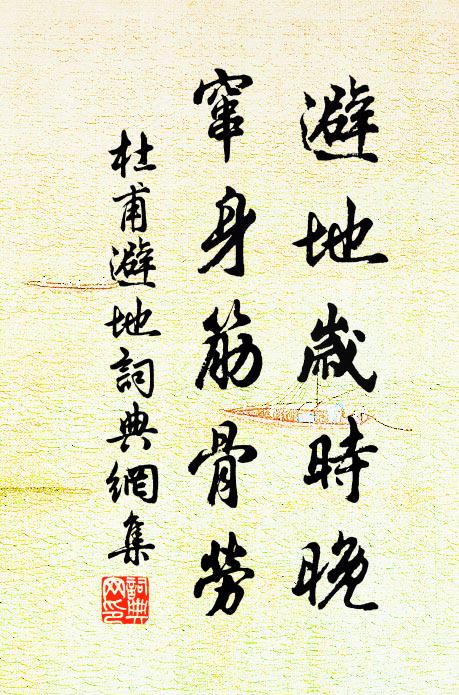 避地歲時晚
竄身筋骨勞
杜甫避地詞典網集
詞典網印